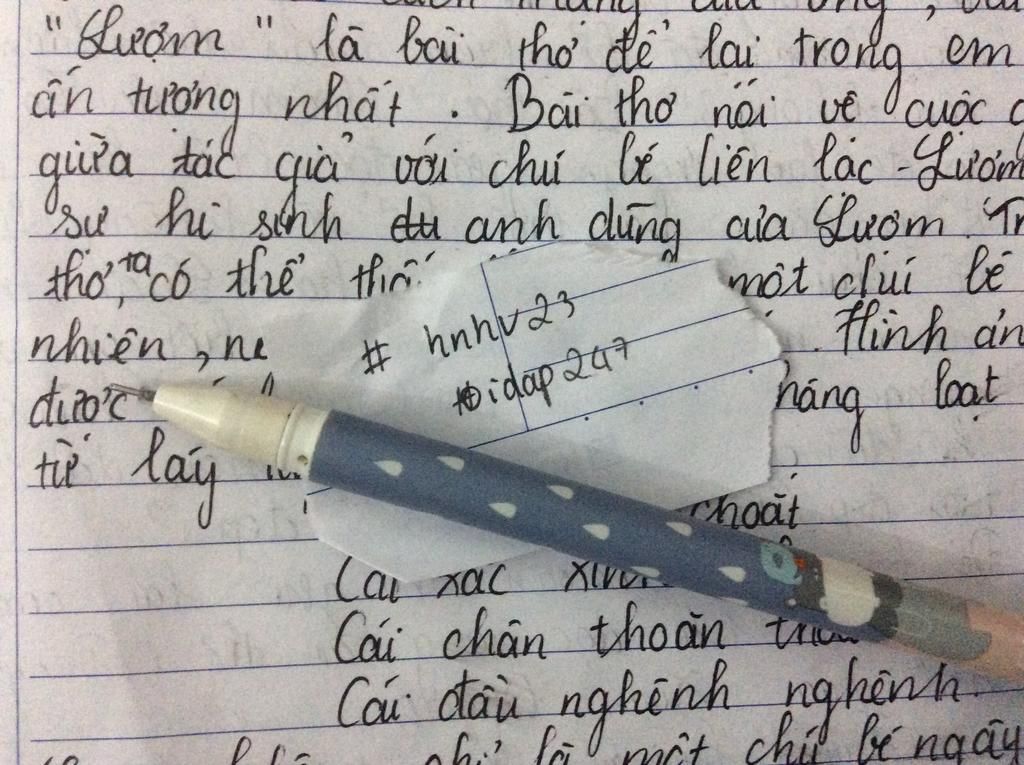 "Lượm" là bài thơ để lại trong em
ấn tượng nhất. Bài thơ nói về cuộc
giữa tác giả với chú bé liên lạc - Lượm
sự hi sinh anh dũng của Lượm.
thơ, ta có thể một chú bé
nhiên, Hình
# hnhv23
được hàng loạt
từ láy
idap247
choắt
Cái xắc
Cái chân thoăn
Cái đầu nghênh nghênh.
là một chú bé ngây